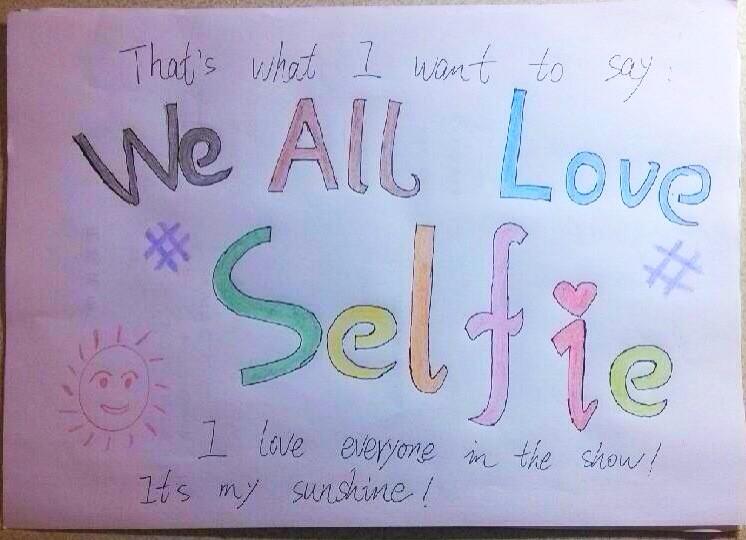 That's what I want to say:
We All Love
# Selfie #
I love everyone in the show!
It's my sunshine!